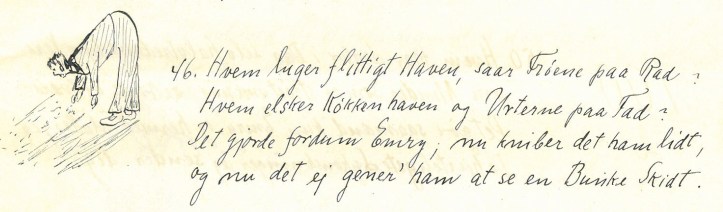 46. Hvem luger flittigt Haven, saar Frøene paa Rad ?
Hvem elsker Køkkenhaven og Urterne paa Fad ?
Det gjorde fordum Emry; nu kniber det ham lidt,
og nu det ej gener' ham at se en Bunke Skidt.